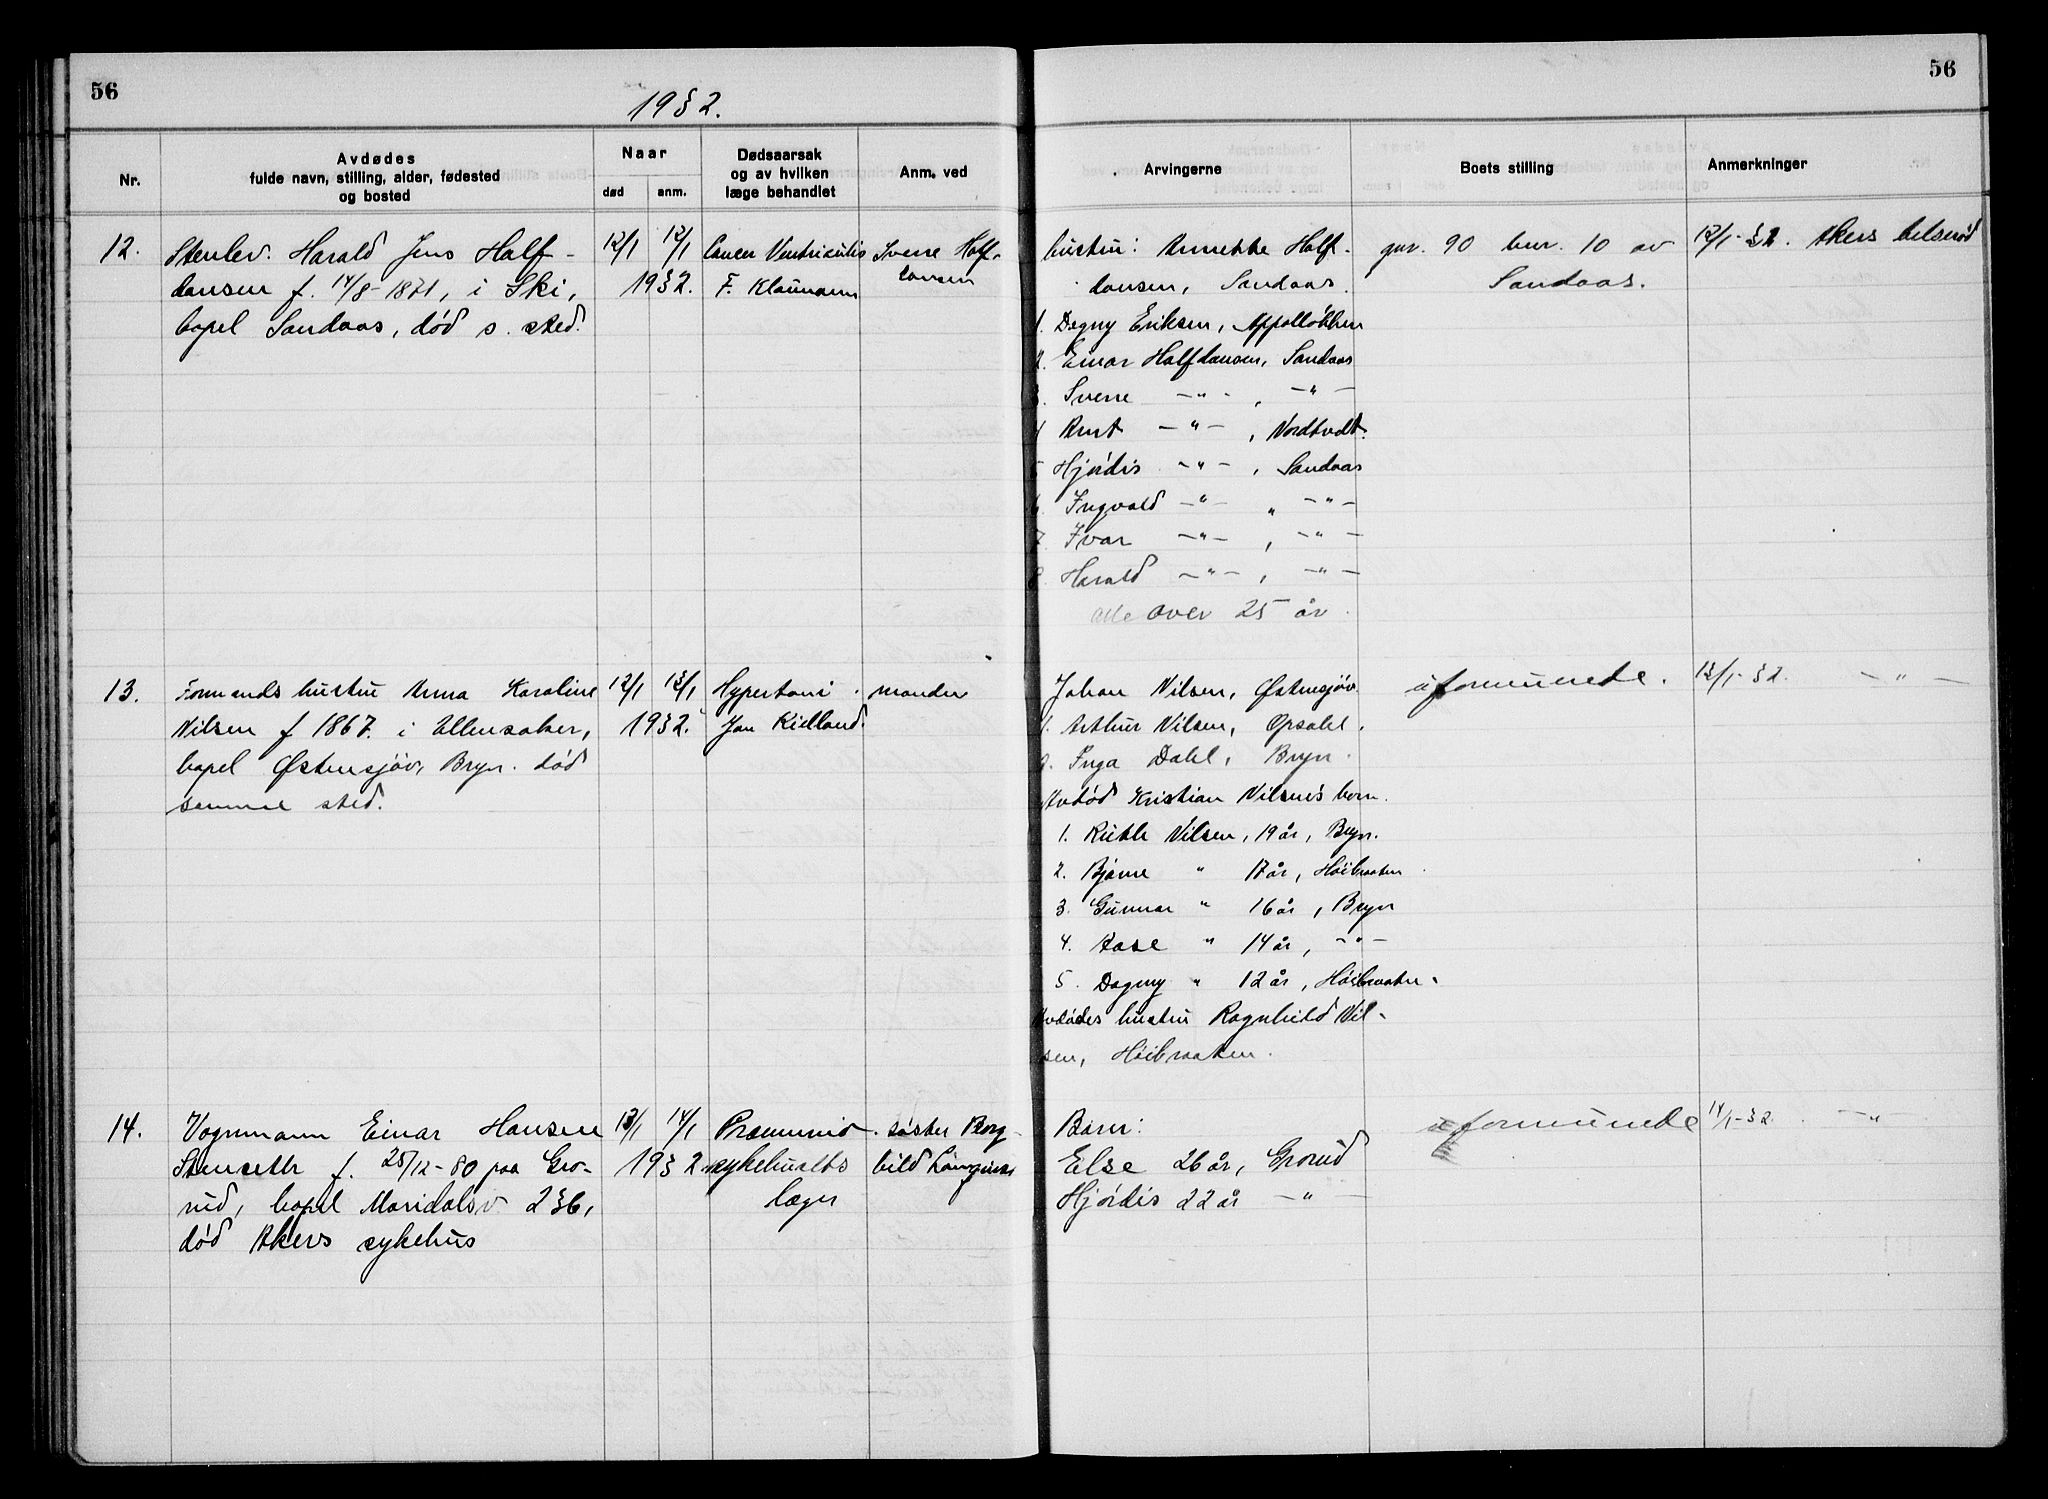 56
56
1932.
Nr.
Avdødes
fulde navn, stilling, alder, fødested
og bosted
Naar
død
anm.
Dødsaarsak
og av hvilken
læge behandlet
Anm. ved
Arvingerne
Boets stilling
Anmerkninger
12.
Stenlev. Harald Jens Half-
dansen f. 14/8-1871, i Ski,
bopel Sandaas, død s. sted.
12/1 12/1
1932.
Cancer Ventriculis
F. Klaumann
Sverre Half-
dansen
hustru: Annette Half-
dansen, Sandaas.
1. Dagny Eriksen, Appalløkken
2. Einar Halfdansen, Sandaas
3. Sverre -"-, -"-
4. Arnt -"-, Nordtvedt.
5. Hjørdis -"-, Sandaas
6. Ingvald -"- , -"-
7. Ivar -"-, -"-
8. Harald -"-, -"-
alle over 25 år.
gnr. 90 bnr. 10 av
Sandaas.
12/1-32. Akers
13.
Formands hustru Anna Karoline
Nilsen f 1867. i Ullensaker,
bopel Østensjøv, Bryn. død
samme sted.
12/1 13/1
1932.
Hypertoni.
Jan Kielland.
manden
Johan Nilsen, Østensjøv.
1. Arthur Nilsen, Opsahl.
2. Inga Dahl, Bryn.
Avdød Kristian Nilsens barn.
1. Ruth Nilsen, 19 år, Bryn.
2. Bjarne " 17 år, Höibraaten.
3. Gunnar " 16 år, Bryn
4. Aase " 14 år, -"-
5. Dagny " 12 år, Höibraaten.
Avdødes hustru Ragnhild Nil-
sen, Höibraaten.
uformuende.
13/1-32. -"-
14.
Vognmann Einar Hansen
Stenseth f. 25/12-80 paa Gro-
rud, bopel Maridalsv 236,
død Akers sykehus
13/1 14/1
1932
sykehusets
læger
søster Borg-
hild
Barn:
Else 26 år, Grorud
Hjørdis 22 år -"-
uformuende
14/1-32. -"-